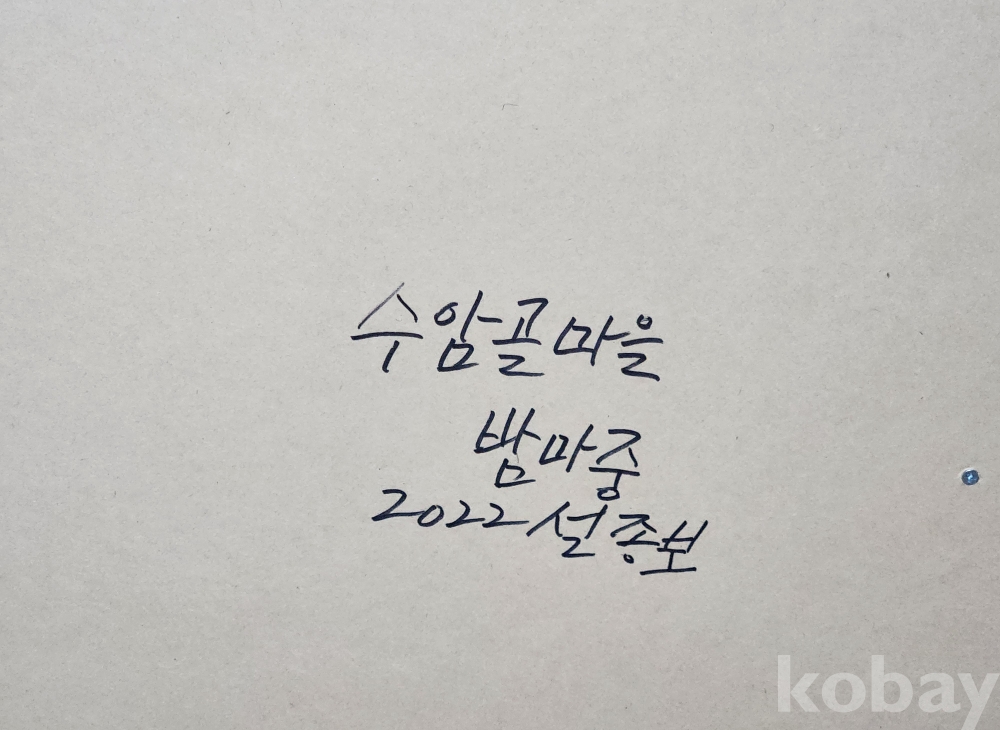 수암골마을
밤마중
2022 설종보
kobay